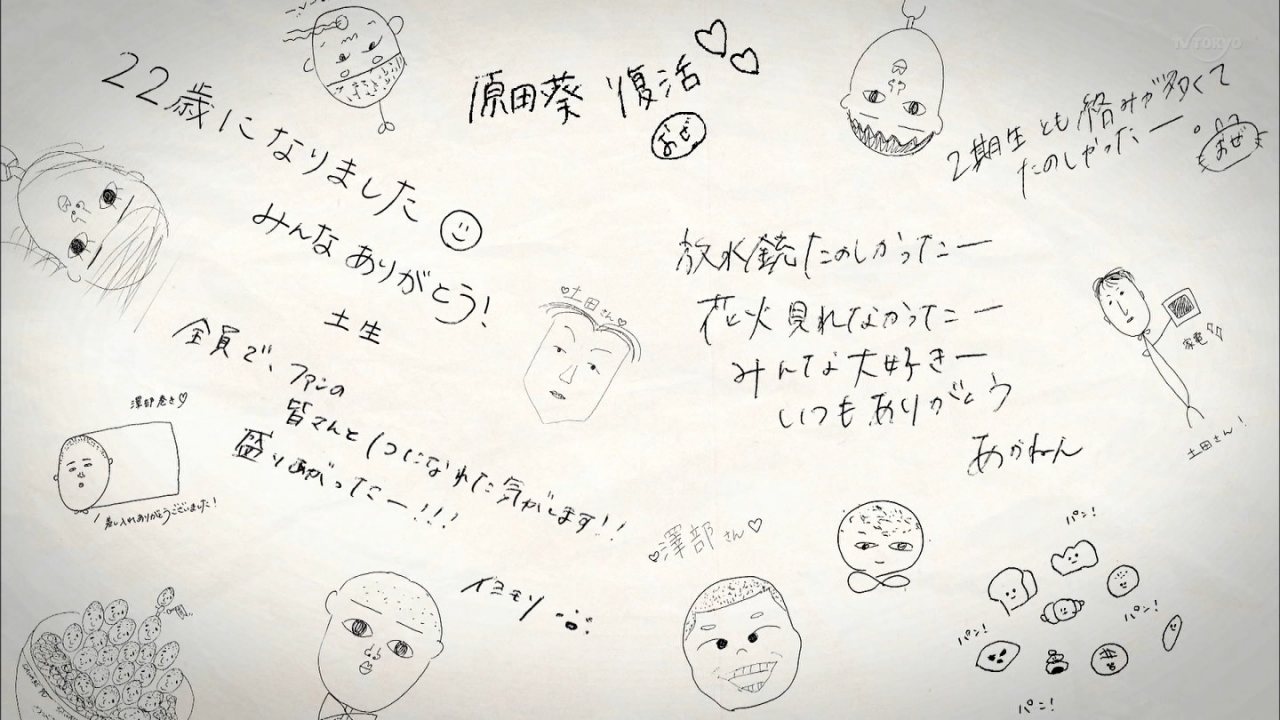 TV TOKYO
22歳になりました
みんなありがとう!
土生
原田葵 復活
おぜ
2期生とも絡みが多くて
たのしかったー
おぜ
放水銃たのしかったー
花火見れなかったー
みんな大好きー
いつもありがとう
あかねん
土田さん
家電
土田さん!
全員で、ファンの
皆さんと1つになれた気がします!!
盛りあがったー!!!
イヨモリ
澤部さん
差し入れありがとうございました!
澤部さん
パン!
パン!
パン!
パン!